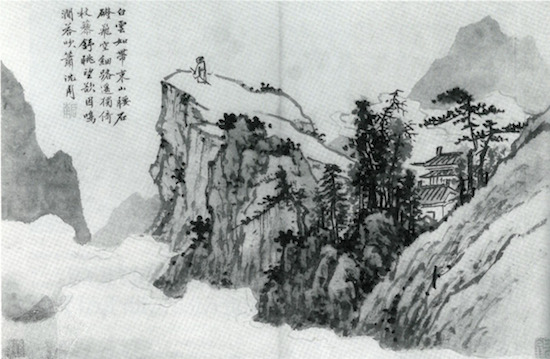 白雲如帶束山腰石
磴飛空細路遙獨倚
杖藜舒眺望欲因鳴
澗答吹簫沈周